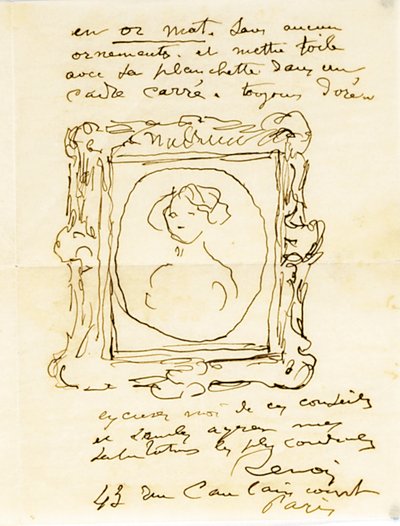 en or mat. Sans aucun
ornements. et mettre toile
avec sa planchette dans un
cadre carré. toujours doré
excusez moi de ces conseils
et
salutations les plus cordiales
Renoir
43 rue Caulaincourt
Paris